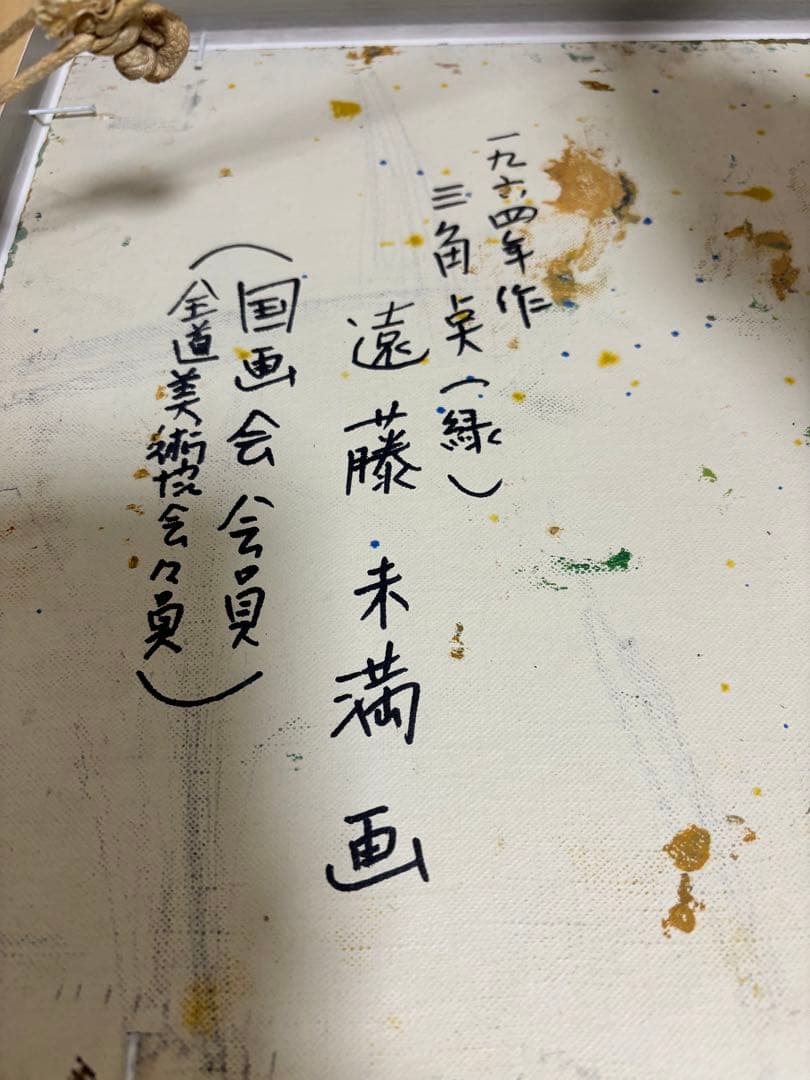 一九六四年作
三角点(緑)
遠藤未満画
(国画会会員
全道美術協会々員)